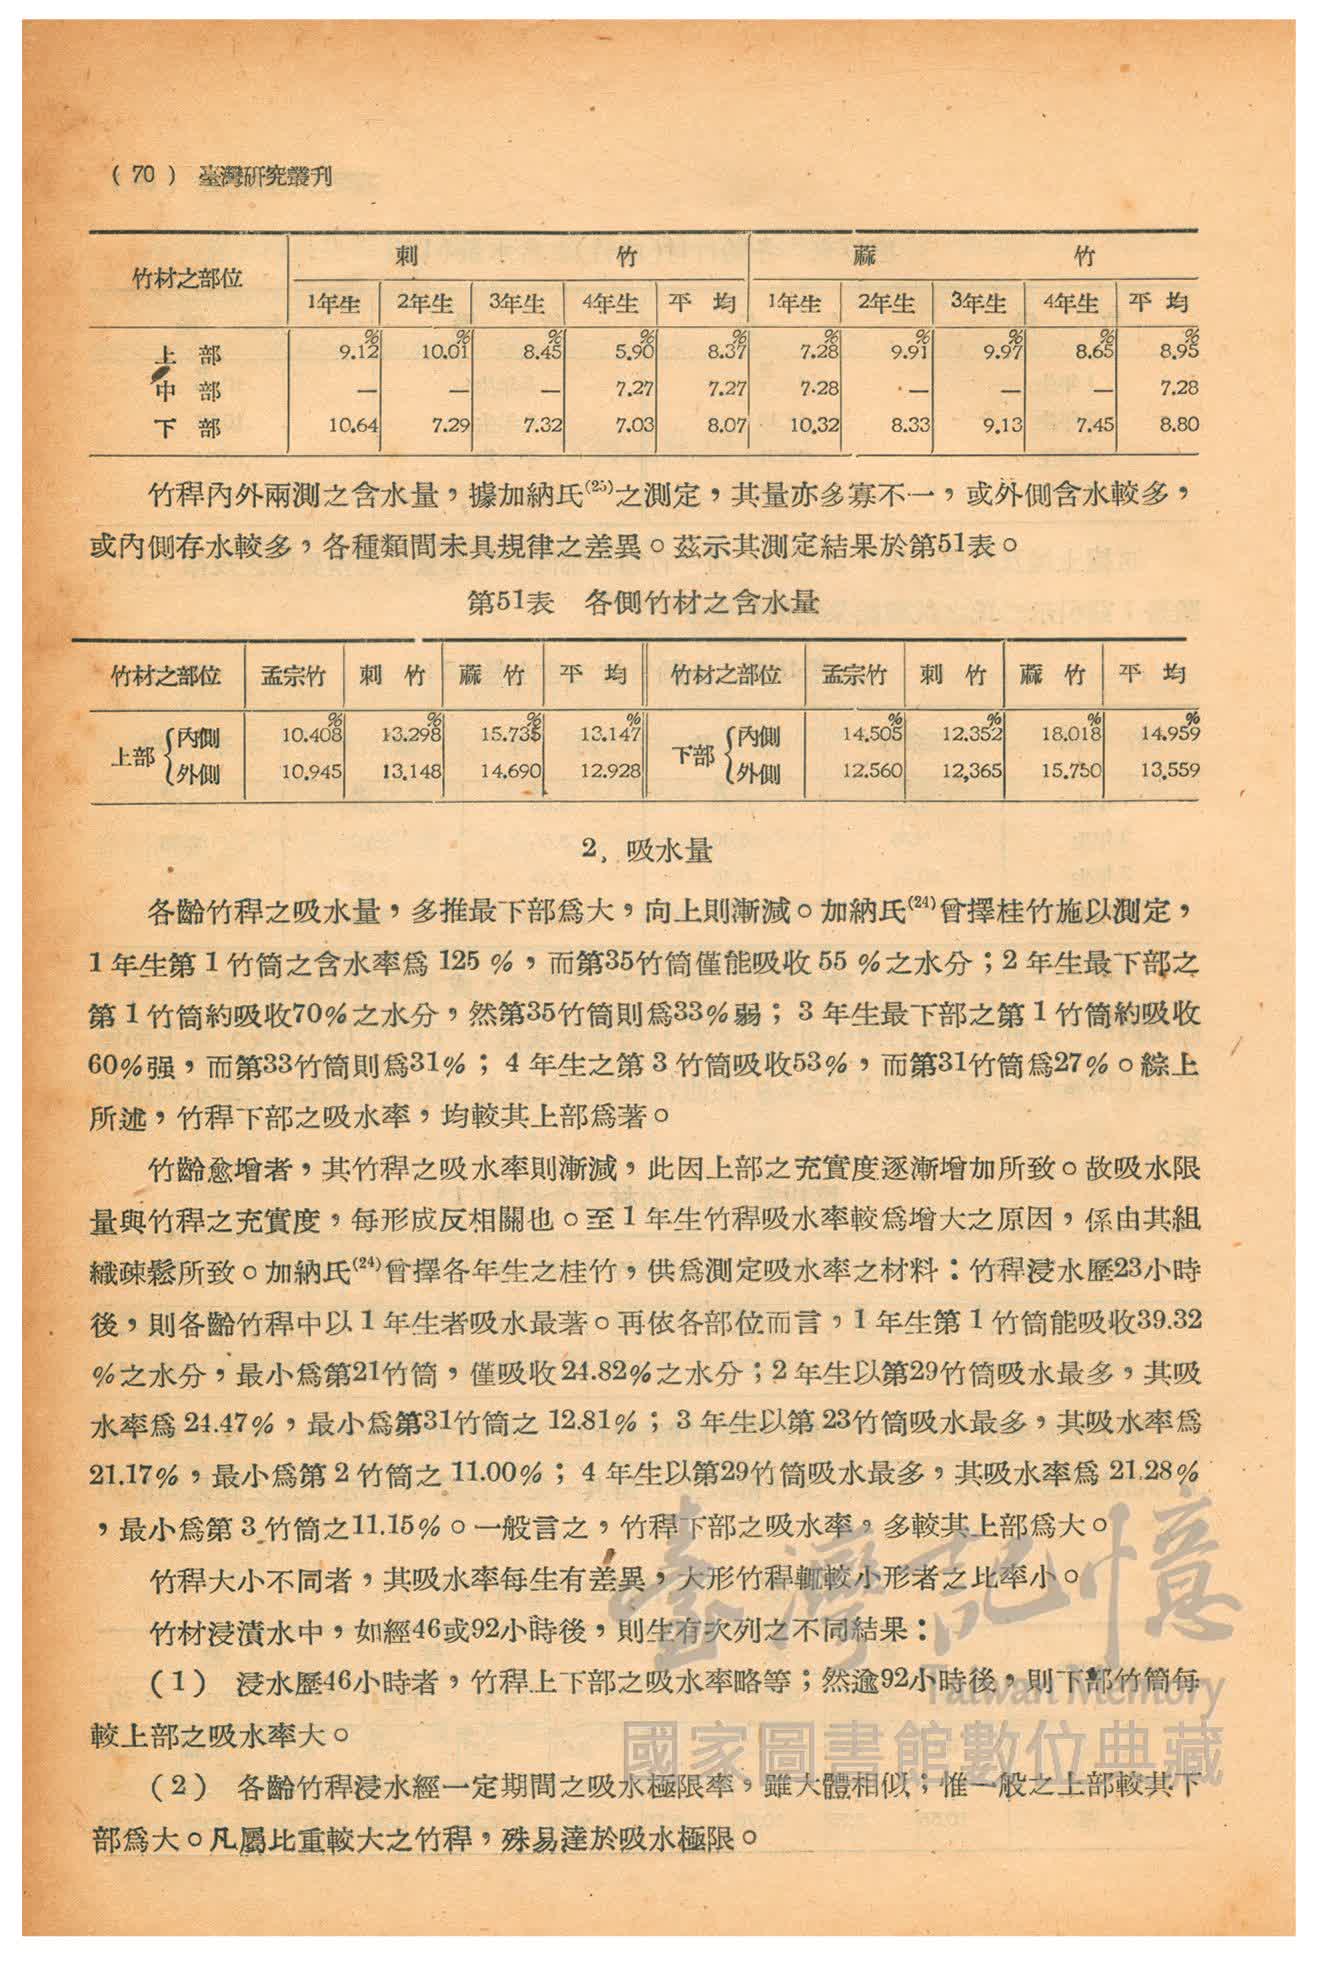 ( 70 ) 臺灣研究叢刊
竹材之部位 刺 竹 蔴 竹
1年生 2年生 3年生 4年生 平 均 1年生 2年生 3年生 4年生 平 均
% % % % % % % % % %
上 部 9.12 10.01 8.45 5.90 8.37 7.28 9.91 9.97 8.65 8.95
中 部 — — — 7.27 7.27 7.28 — — — 7.28
下 部 10.64 7.29 7.32 7.03 8.07 10.32 8.33 9.13 7.45 8.80
竹稈內外兩測之含水量，據加納氏(25)之測定，其量亦多寡不一，或外側含水較多，
或內側存水較多，各種類間未具規律之差異。茲示其測定結果於第51表。
第51表 各側竹材之含水量
竹材之部位 孟宗竹 刺 竹 蔴 竹 平 均 竹材之部位 孟宗竹 刺 竹 蔴 竹 平 均
% % % % % % % %
上部 內側 10.408 13.298 15.735 13.147 下部 內側 14.505 12.352 18.018 14.959
外側 10.945 13.148 14.690 12.928 外側 12.560 12,365 15.750 13,559
2. 吸水量
各齡竹稈之吸水量，多推最下部爲大，向上則漸減。加納氏(24)曾擇桂竹施以測定，
1 年生第 1 竹筒之含水率爲 125 %，而第35竹筒僅能吸收 55 %之水分；2 年生最下部之
第 1 竹筒約吸收70%之水分，然第35竹筒則爲33%弱； 3 年生最下部之第 1 竹筒約吸收
60%强，而第33竹筒則爲31%； 4 年生之第 3 竹筒吸收53%，而第31竹筒爲27%。綜上
所述，竹稈下部之吸水率，均較其上部爲著。
竹齡愈增者，其竹稈之吸水率則漸減，此因上部之充實度逐漸增加所致。故吸水限
量與竹稈之充實度，每形成反相關也。至 1 年生竹稈吸水率較爲增大之原因，係由其組
織疎鬆所致。加納氏(24)曾擇各年生之桂竹，供爲測定吸水率之材料：竹稈浸水歷23小時
後，則各齡竹稈中以 1 年生者吸水最著。再依各部位而言，1 年生第 1 竹筒能吸收39.32
%之水分，最小爲第21竹筒，僅吸收 24.82%之水分；2 年生以第29竹筒吸水最多，其吸
水率爲 24.47%，最小爲第31竹筒之 12.81%； 3 年生以第 23竹筒吸水最多，其吸水率爲
21.17%，最小爲第 2 竹筒之 11.00%； 4 年生以第29竹筒吸水最多，其吸水率爲 21.28%
，最小爲第 3 竹筒之11.15%。一般言之，竹稈下部之吸水率，多較其上部爲大。
竹稈大小不同者，其吸水率每生有差異，大形竹稈輒較小形者之比率小。
竹材浸漬水中，如經46或92小時後，則生有次列之不同結果：
(1) 浸水歷46小時者，竹稈上下部之吸水率略等；然逾92小時後，則下部竹筒每
較上部之吸水率大。
(2) 各齡竹稈浸水經一定期間之吸水極限率，雖大體相似；惟一般之上部較其下
部爲大。凡屬比重較大之竹稈，殊易達於吸水極限。
臺灣記憶
Taiwan Memory
國家圖書館數位典藏